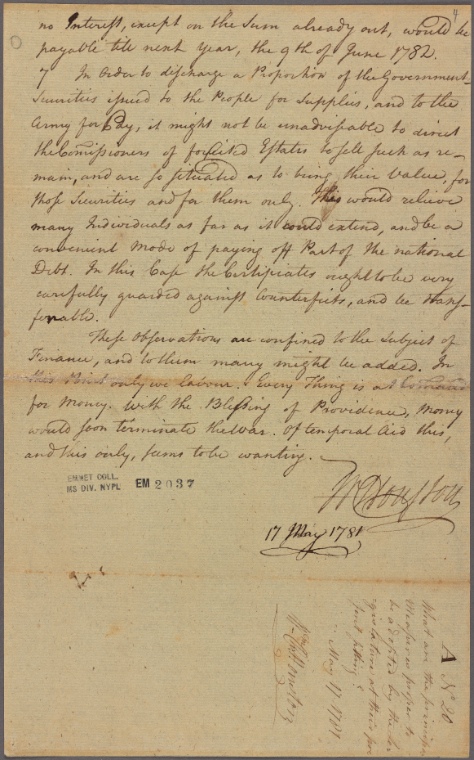 4
no Interest, except on the Sum already out, would be
payable till next Year, the 9th of June 1782.
7 In Order to discharge a Proportion of the Government
Securities issued to the People for Supplies, and to the
Army for Pay, it might not be unadviseable to direct
the Comissioners of forfeited Estates to sell such as re-
main, and are so situated as to bring their Value, for
those Securities and for them only. This would relieve
many Individuals as far as it could extend, and be a
convenient Mode of paying off Part of the national
Debt. In this Case the Certificates ought to be very
carefully guarded against Counterfeits, and be trans-
ferrable.
These Observations are confined to the Subject of
Finance, and to them many might be added. In
this Point only we labour. Every Thing is at
for Money. With the Blessing of Providence, Money
would soon terminate the War. Of temporal Aid this,
and this only, seems to be wanting.
EMMET COLL.
MS DIV. NYPL
EM 2037
Wm Houston
17 May 1781
A No 20
What are the principal
Measures proper to
be adopted by the Le-
gislature at their pre-
sent sitting?
May 17. 1781.
Wm Houston